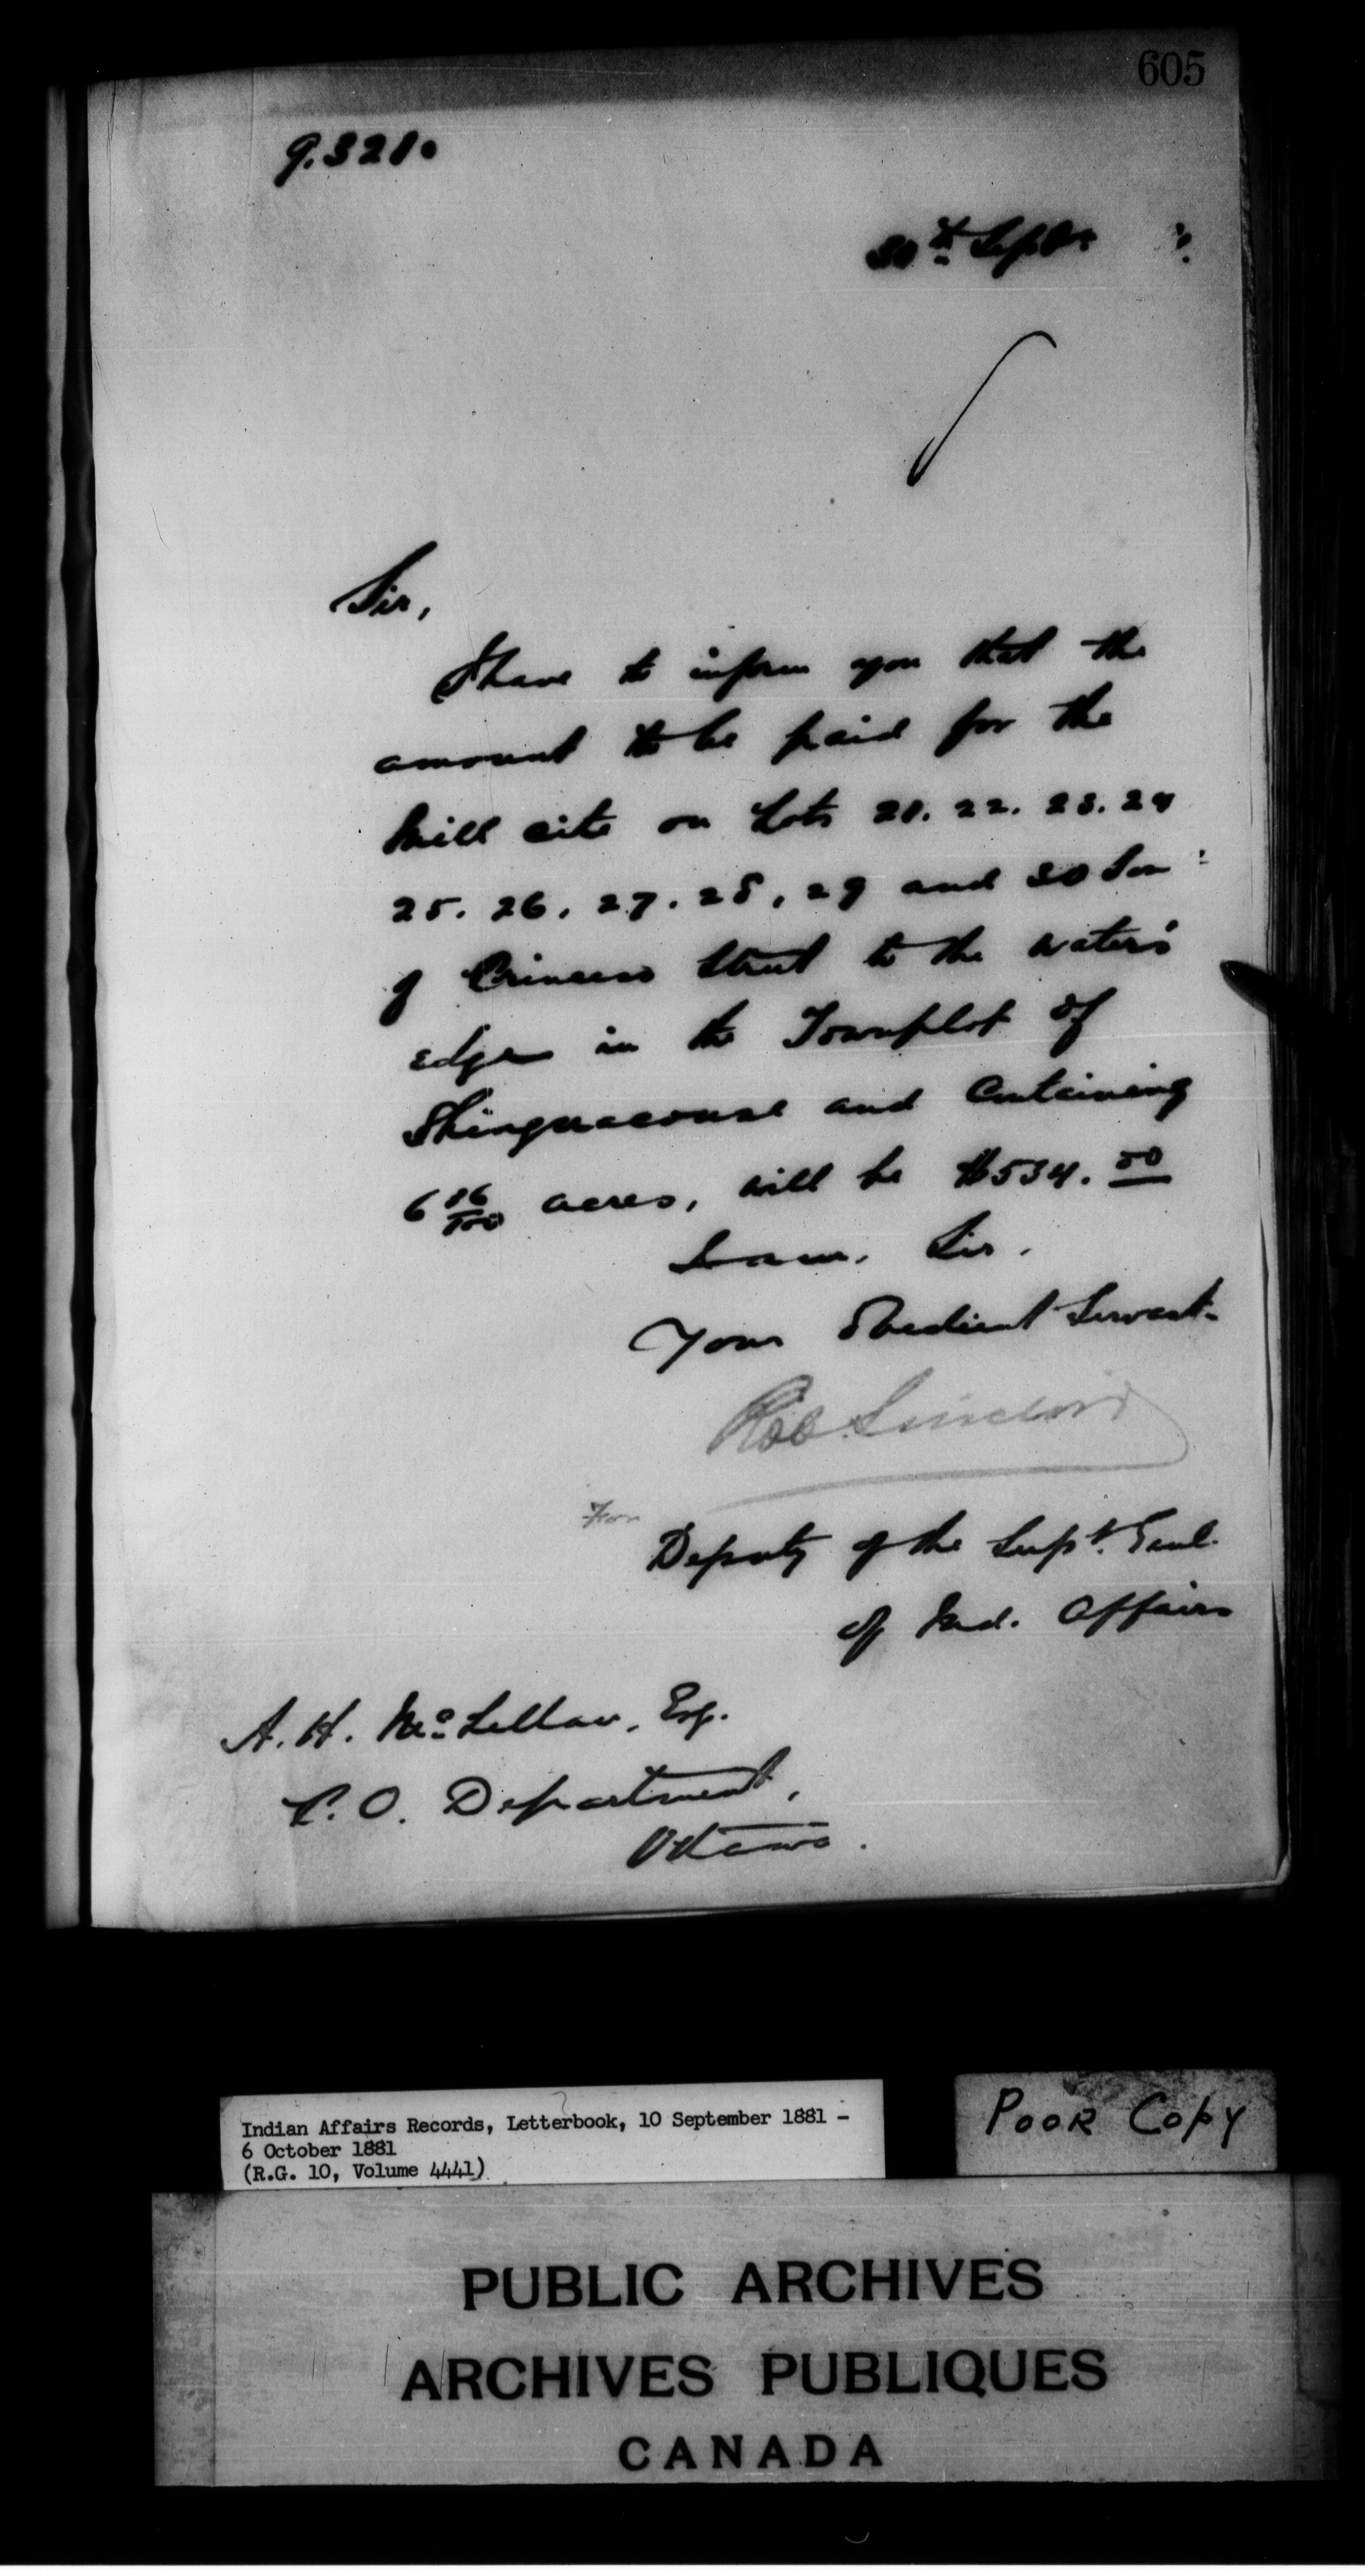 605
9.321.
30th Septr
Sir,
I have to inform you that the
amount to be paid for the
Mill site on Lots 21. 22. 23. 24
25. 26. 27. 28, 29 and 30 Son
of Princess Street to the waters
edge in the Townplot of
Shinguacouse and containing
6 16/100 acres, will be $534.00
I am, Sir.
Your Obedient Servant.
Rob. Sinclair
For
Deputy of the Supt. Genl.
of Ind. Affairs
A. H. McLellan, Esq.
P.O. Department,
Ottawa.
Indian Affairs Records, Letterbook, 10 September 1881 -
6 October 1881
(R.G. 10, Volume 4441)
POOR COPY
PUBLIC ARCHIVES
ARCHIVES PUBLIQUES
CANADA